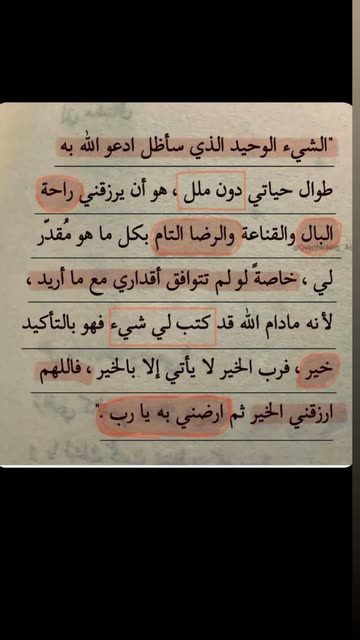 "الشيء الوحيد الذي سأظل ادعو الله به
طوال حياتي دون ملل ، هو أن يرزقني راحة
البال والقناعة والرضا التام بكل ما هو مُقدّر
لي ، خاصةً لو لم تتوافق أقداري مع ما أريد ،
لأنه مادام الله قد كتب لي شيء فهو بالتأكيد
خير ، فرب الخير لا يأتي إلا بالخير ، فاللهم
ارزقني الخير ثم ارضني به يا رب ."